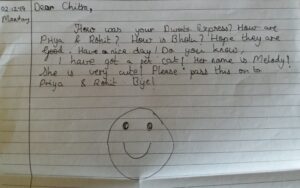 02.12.19 Dear Chitra,
Monday
How was your Duronto Express? How are
Priya & Rohit? How is Bholu? Hope they are
good. Have a nice day! Do you know,
I have got a pet cat! Her name is Melody!
She is very cute! Please pass this on to
Priya & Rohit Bye!